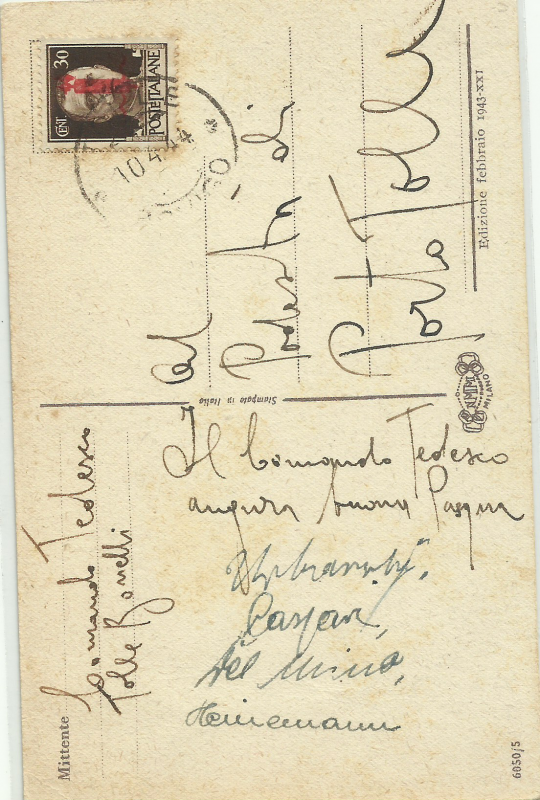 CENT 30
POSTE ITALIANE
10.4.44
Al
Podestà di
Porto Tolle
Edizione febbraio 1943-XXI
Stampato in Italia
MILANO
Mittente Comando Tedesco
Tolle Bonelli
Il Comando Tedesco
augura buona Pasqua
Heinemann
6050/5